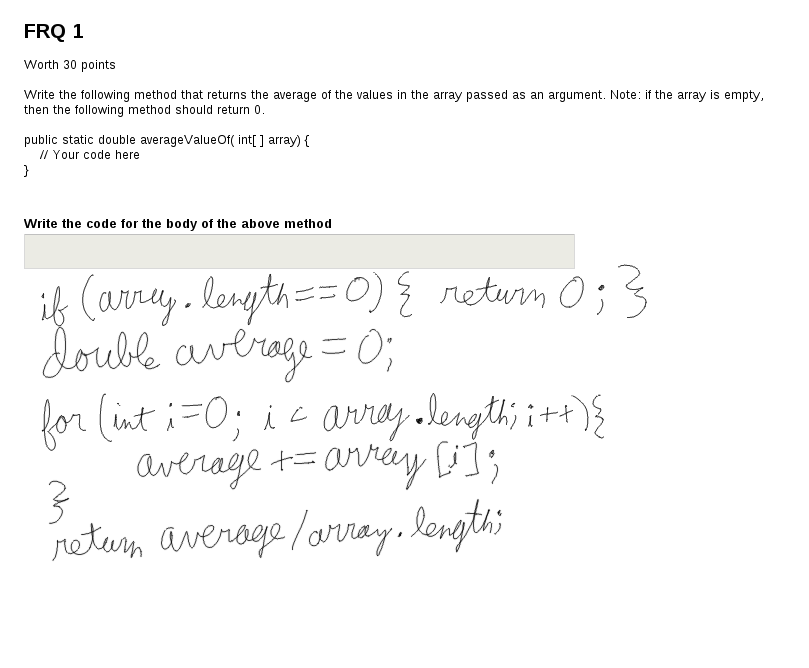 FRQ 1
Worth 30 points
Write the following method that returns the average of the values in the array passed as an argument. Note: if the array is empty,
then the following method should return 0.
public static double averageValueOf( int[ ] array) {
// Your code here
}
Write the code for the body of the above method
if (array.length==0) { return 0; }
double average = 0;
for (int i=0; i < array.length; i++){
average += array[i];
}
return average/array.length;